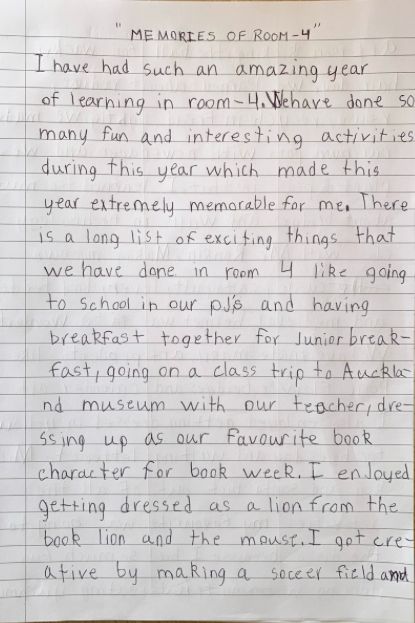 "MEMORIES OF ROOM-4"
I have had such an amazing year
of learning in room-4. We have done so
many fun and interesting activities
during this year which made this
year extremely memorable for me. There
is a long list of exciting things that
we have done in room 4 like going
to school in our pJ's and having
breakfast together for Junior break-
fast, going on a class trip to Auckla-
nd museum with our teacher, dre-
ssing up as our favourite book
character for book week. I enjoyed
getting dressed as a lion from the
book lion and the mouse. I got cre-
ative by making a soccer field and